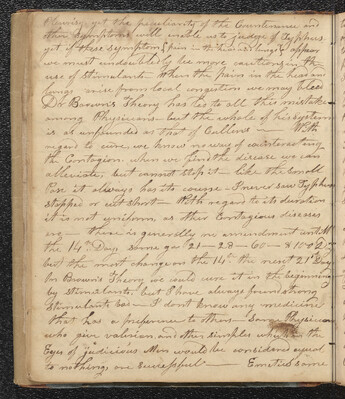 yet the peculiarity of the Countenance and
other Symptoms will enable us to judge of Typhus
yet if these symptoms (pain in the head or lungs) appear
we must undoubtedly be more cautious in the
use of stimulants. When the pain in the head and
lungs arise from local congestion we may bleed
Dr Brown's Theory has led to all this mistake
among Physicians but the whole of his system
is as unfounded as that of Cullens — With
regard to cure, we know no way of counteracting
the Contagion. when we find the disease we can
alleviate, but cannot stop it — like the Small
Pox it always has its course. I never saw Typhus
stopped or cut short — With regard to its duration
it is not uniform, as other Contagious diseases
are — there is generally no amendment until
the 14th Day some go 21 — 28 — 60 — &
but the most change on the 14th the next 21st Day
in Brown's Theory we could cure it in the beginning
by stimulants, but I have always found strong
stimulants bad — I dont know any medicine
that has a preference to others — some Physicians
who give valerian, and other simples which in the
Eyes of judicious Men would be considered equal
to nothing, are successful — Emetics some